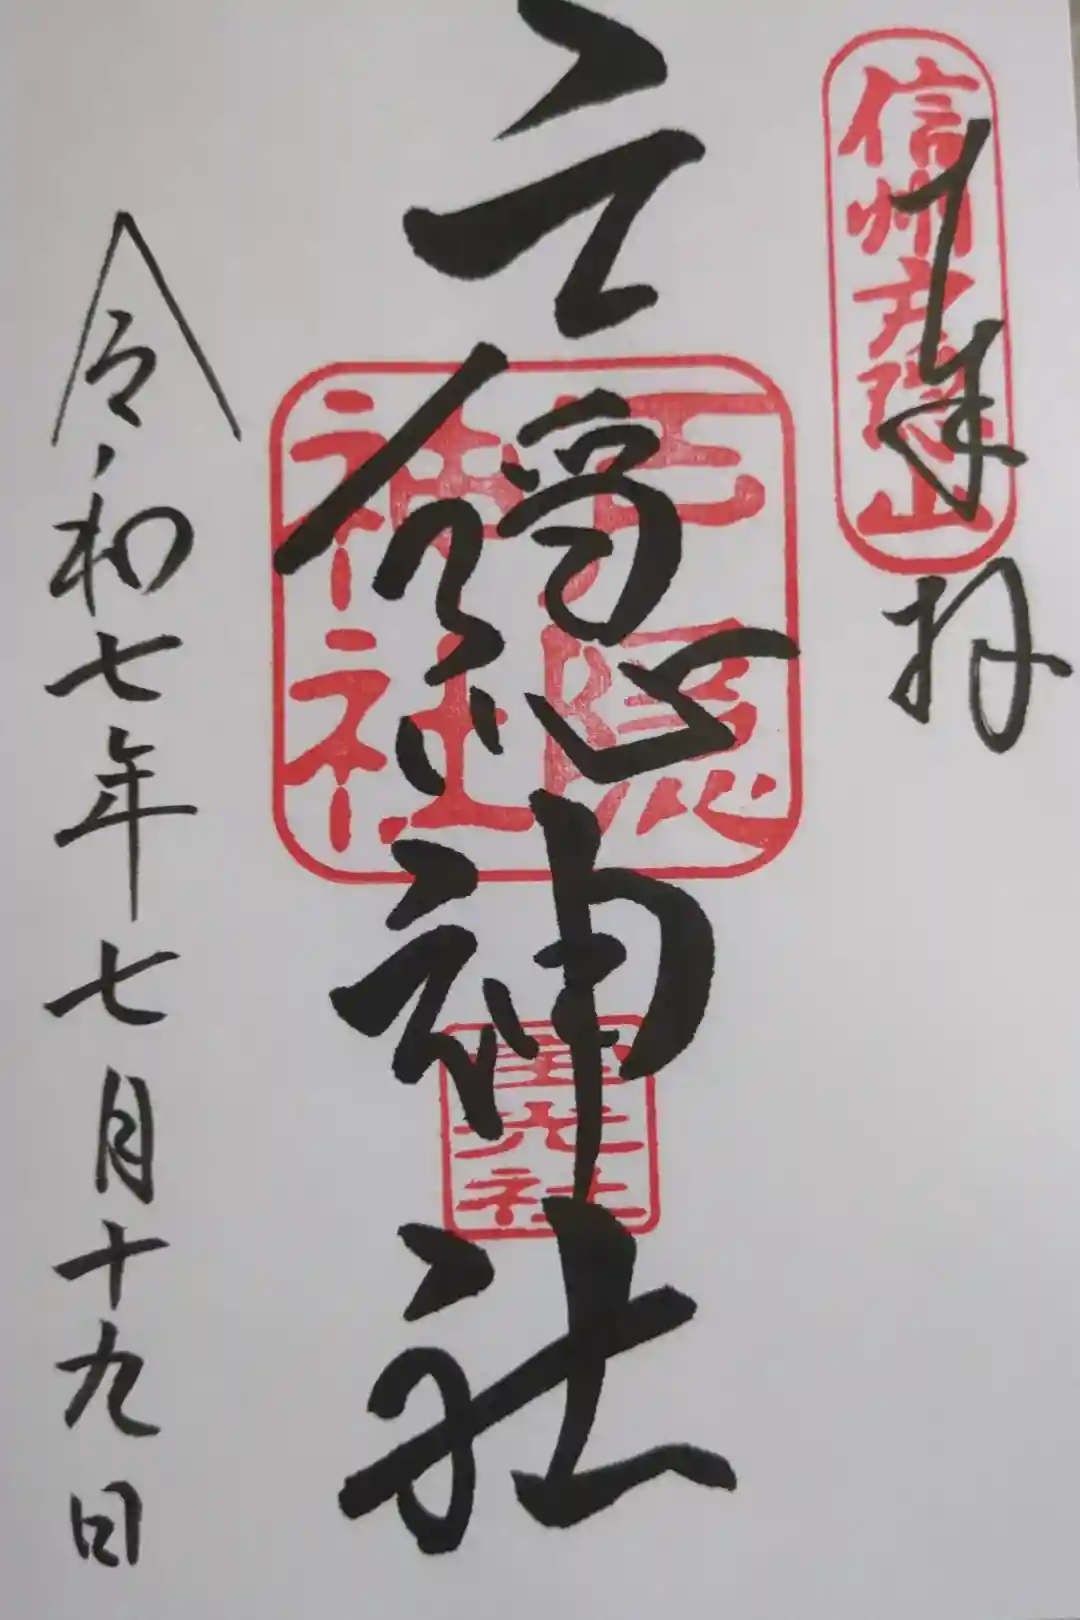 奉拝
信州戸隠山
戸隠神社
戸隠
神社
宝光社
令和七年七月十九日